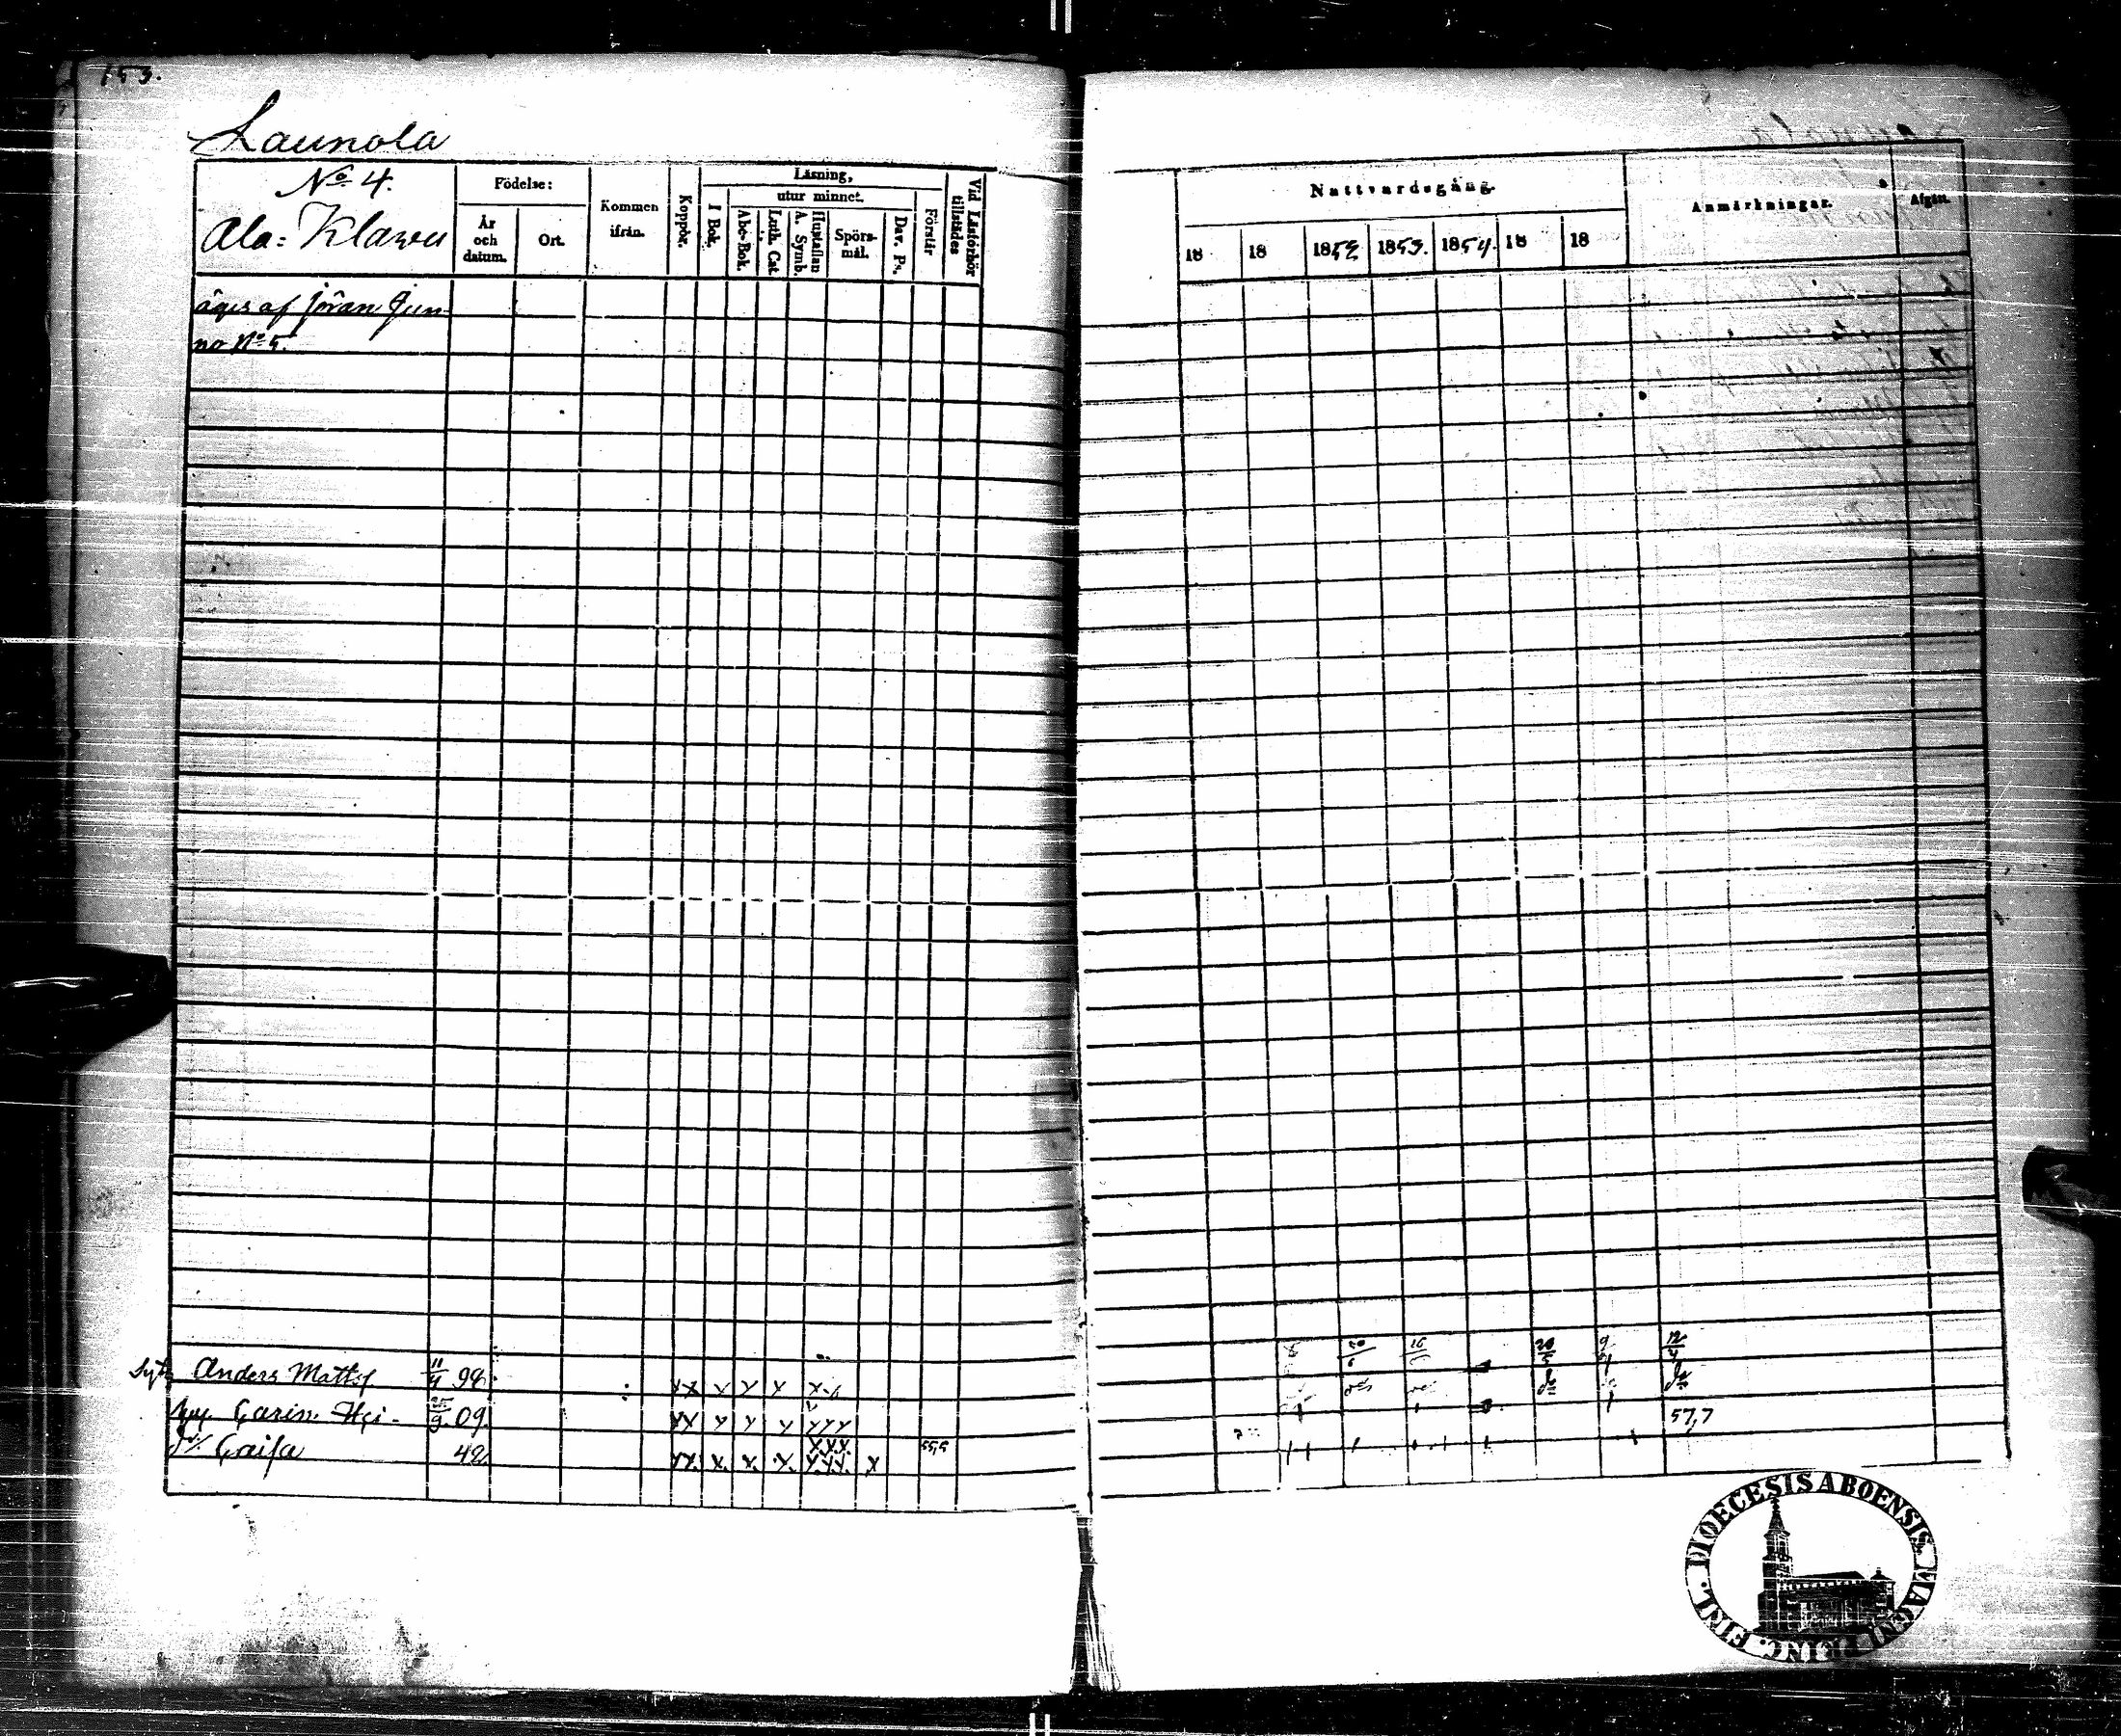 153.
Launola
No 4.
Ala-Klawu
Födelse:
År och datum.
Ort.
Kommen ifrån.
Koppör.
Läsning,
I Bok.
utur minnet.
Abc-Bok.
Luth. Cat.
Hustaflan A. Symb.
Spörsmål.
Dav. Ps.
Förstår
Vid Läsförhör tillstädes
Nattvardsgång.
18 18 1852 1853. 1854. 18 18
Anmärkningar.
Afgått.
äges af Jöran
no No 5.
Anders Matts 11/4 98 x x x x x x x 20/6 20/5 9 12/4
Carin 25/9 09. x x x x x x x x do do
57,7
Caisa 42 x x x x x x x x x 55,5
FINL. DIOECESIS ABOENSIS. MAGNI PRINC.